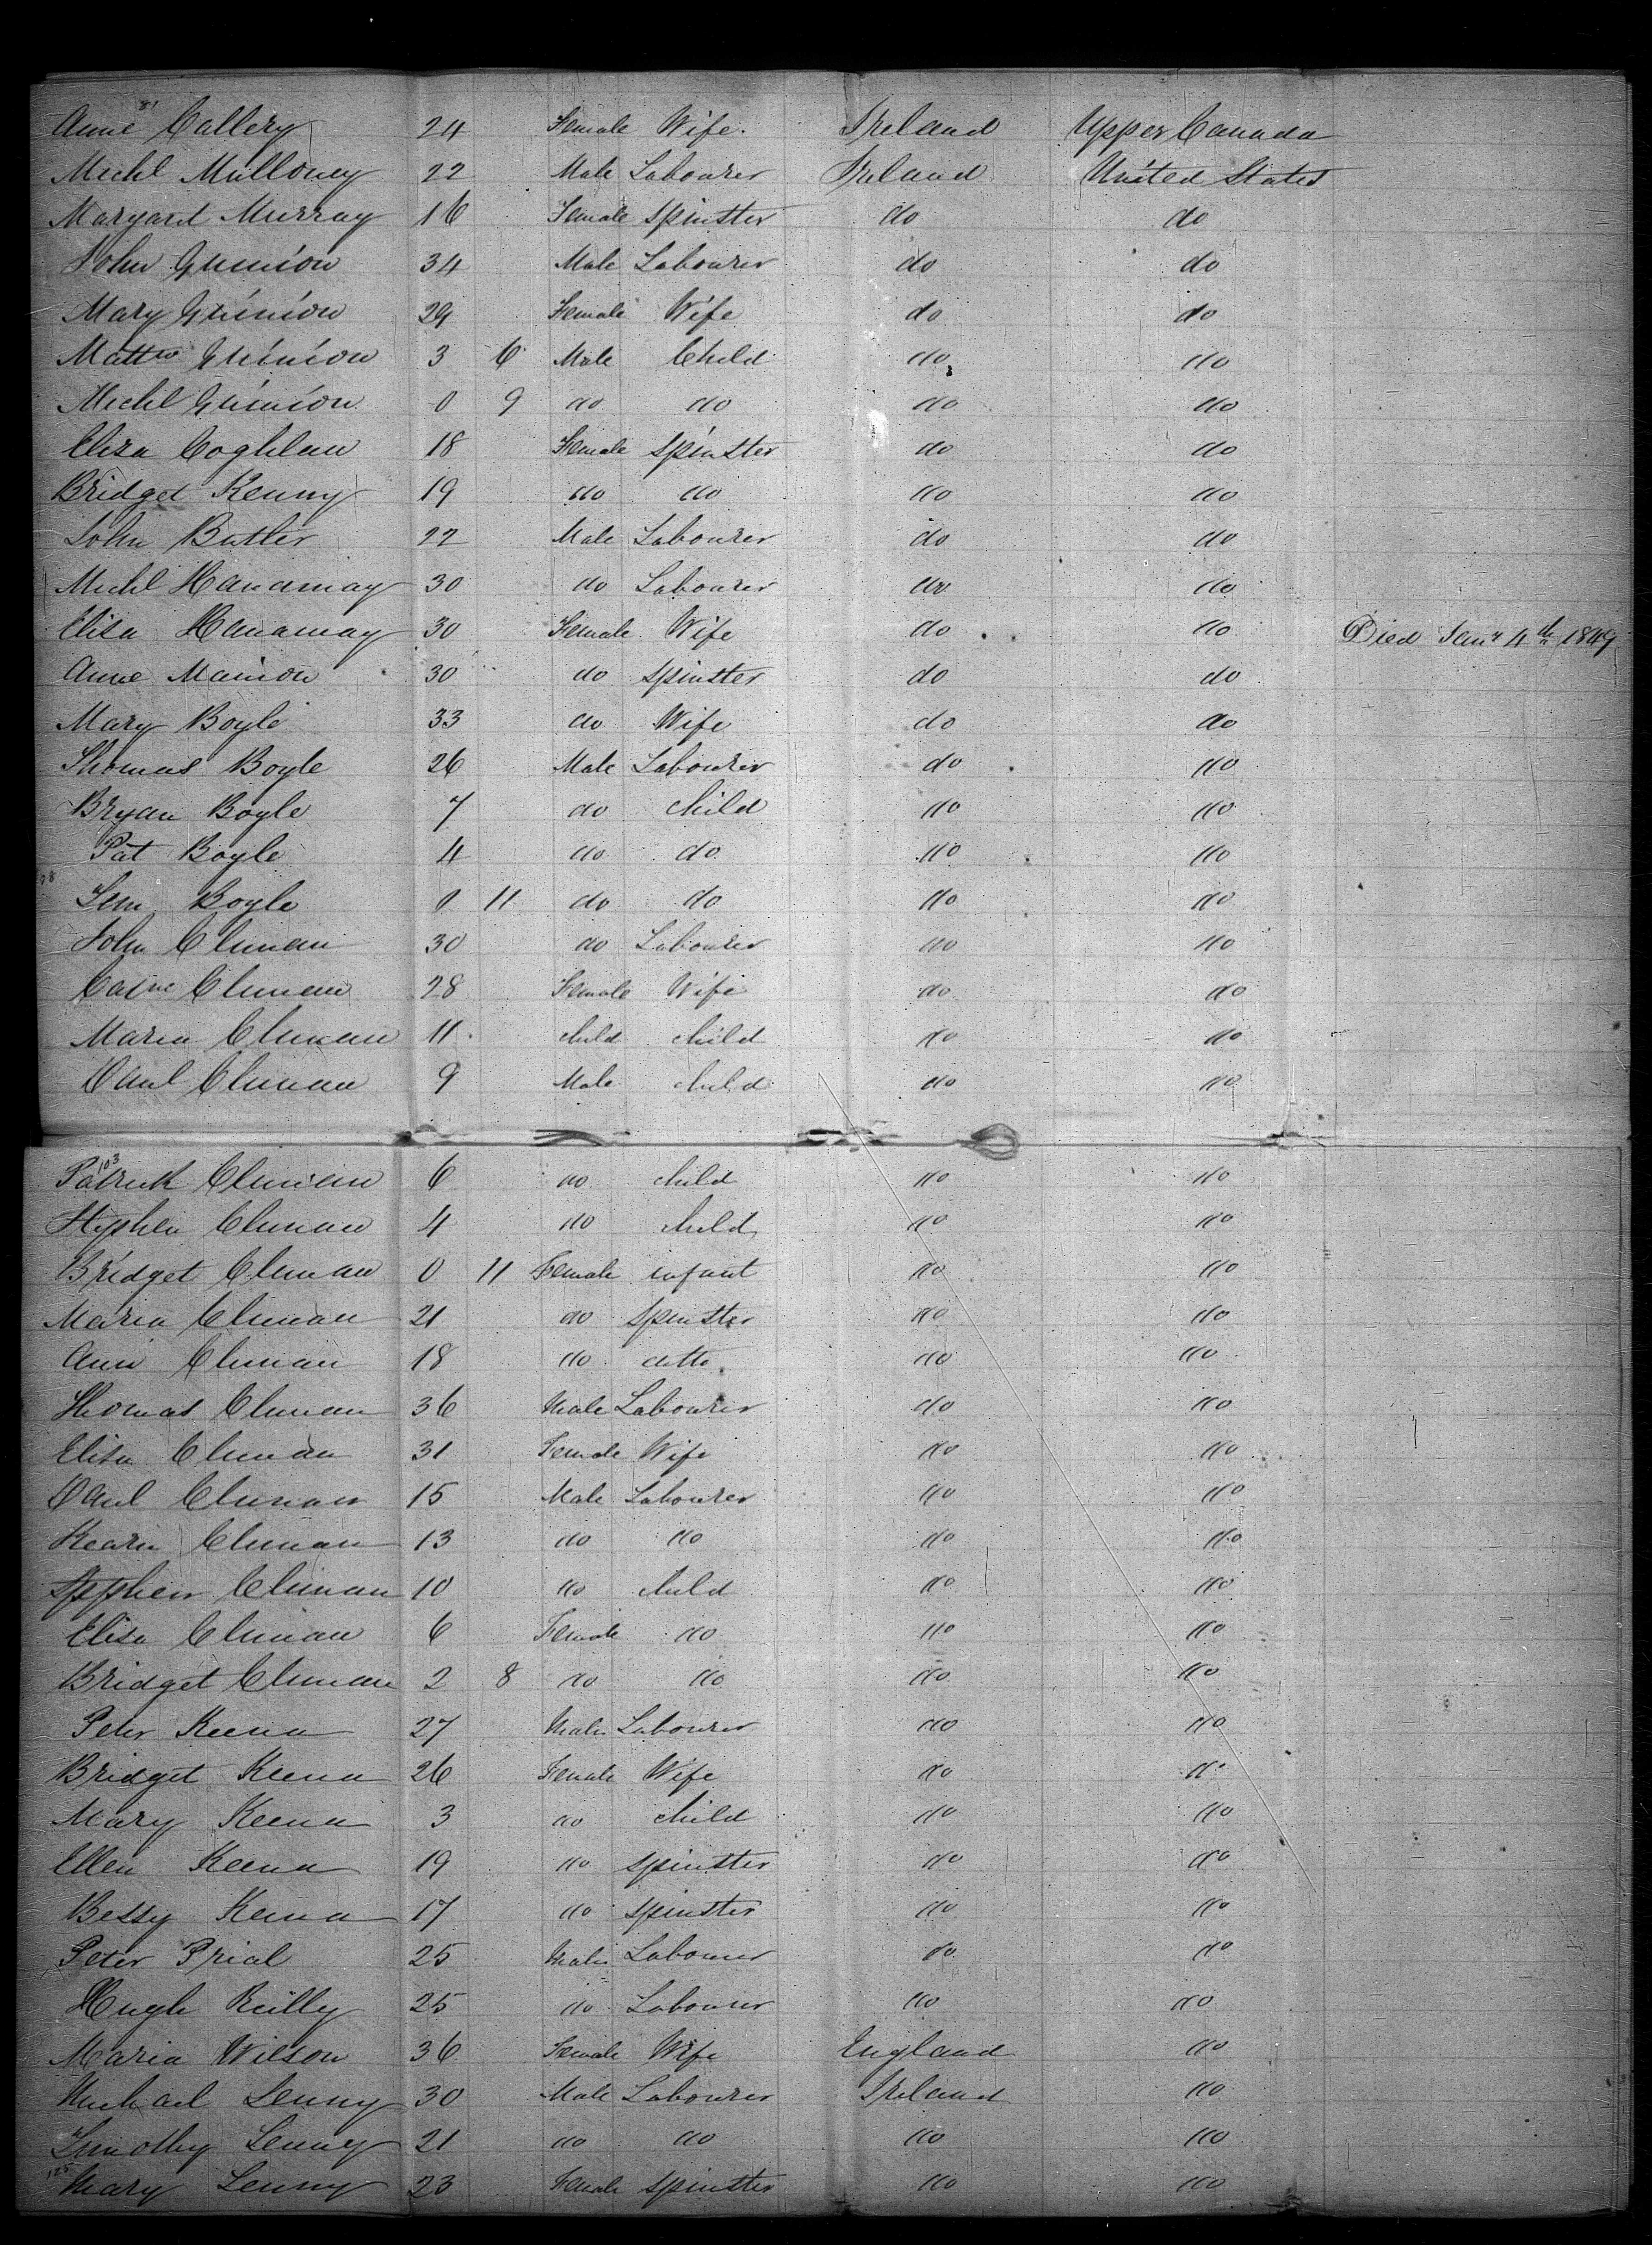 81
Anne Callery 24 Female Wife. Ireland Upper Canada
Michl Mulloney 22 Male Labourer Ireland United States
Margaret Murray 16 Female Spinster do do
John Guinion 34 Male Labourer do do
Mary Guinion 29 Female Wife do do
Mattw Guinion 3 6 Male Child do do
Michl Guinion 0 9 do do do do
Eliza Coghlan 18 Female Spinster do do
Bridget Kenny 19 do do do do
John Butler 22 Male Labourer do do
Michl Hanamay 30 do Labourer do do
Elisa Hanamay 30 Female Wife do do Died Jany 4th 1849
Anne Mainon 30 do Spinster do do
Mary Boyle 33 do Wife do do
Thomas Boyle 26 Male Labourer do do
Bryan Boyle 7 do child do do
Pat Boyle 4 do do do do
Boyle 0 11 do do do do
John Clunan 30 do Labourer do do
Cathe Clunan 28 Female Wife do do
Maria Clunan 11 child child do do
Danl Clunan 9 Male child do do
103
Patrick Clunan 6 do child do do
Stephen Clunan 4 do child do do
Bridget Clunan 0 11 Female infant do do
Maria Clunan 21 do Spinster do do
Ann Clunan 18 do ditto do do
Thomas Clunan 36 Male Labourer do do
Elisa Clunan 31 Female Wife do do
Danl Clunan 15 Male Labourer do do
Kearn Clunan 13 do do do do
Stephen Clunan 10 do child do do
Elisa Clunan 6 Female do do do
Bridget Clunan 2 8 do do do do
Peter Keena 27 Male Labourer do do
Bridget Keena 26 Female Wife do do
Mary Keena 3 do child do do
Ellen Keena 19 do Spinster do do
Bessy Keena 17 do Spinster do do
Peter Prial 25 Male Labourer do do
Hugh Reilly 25 do Labourer do do
Maria Wilson 36 Female Wife England do
Michael Lenny 30 Male Labourer Ireland do
Timothy Lenny 21 do do do do
125
Mary Lenny 23 Female Spinster do do